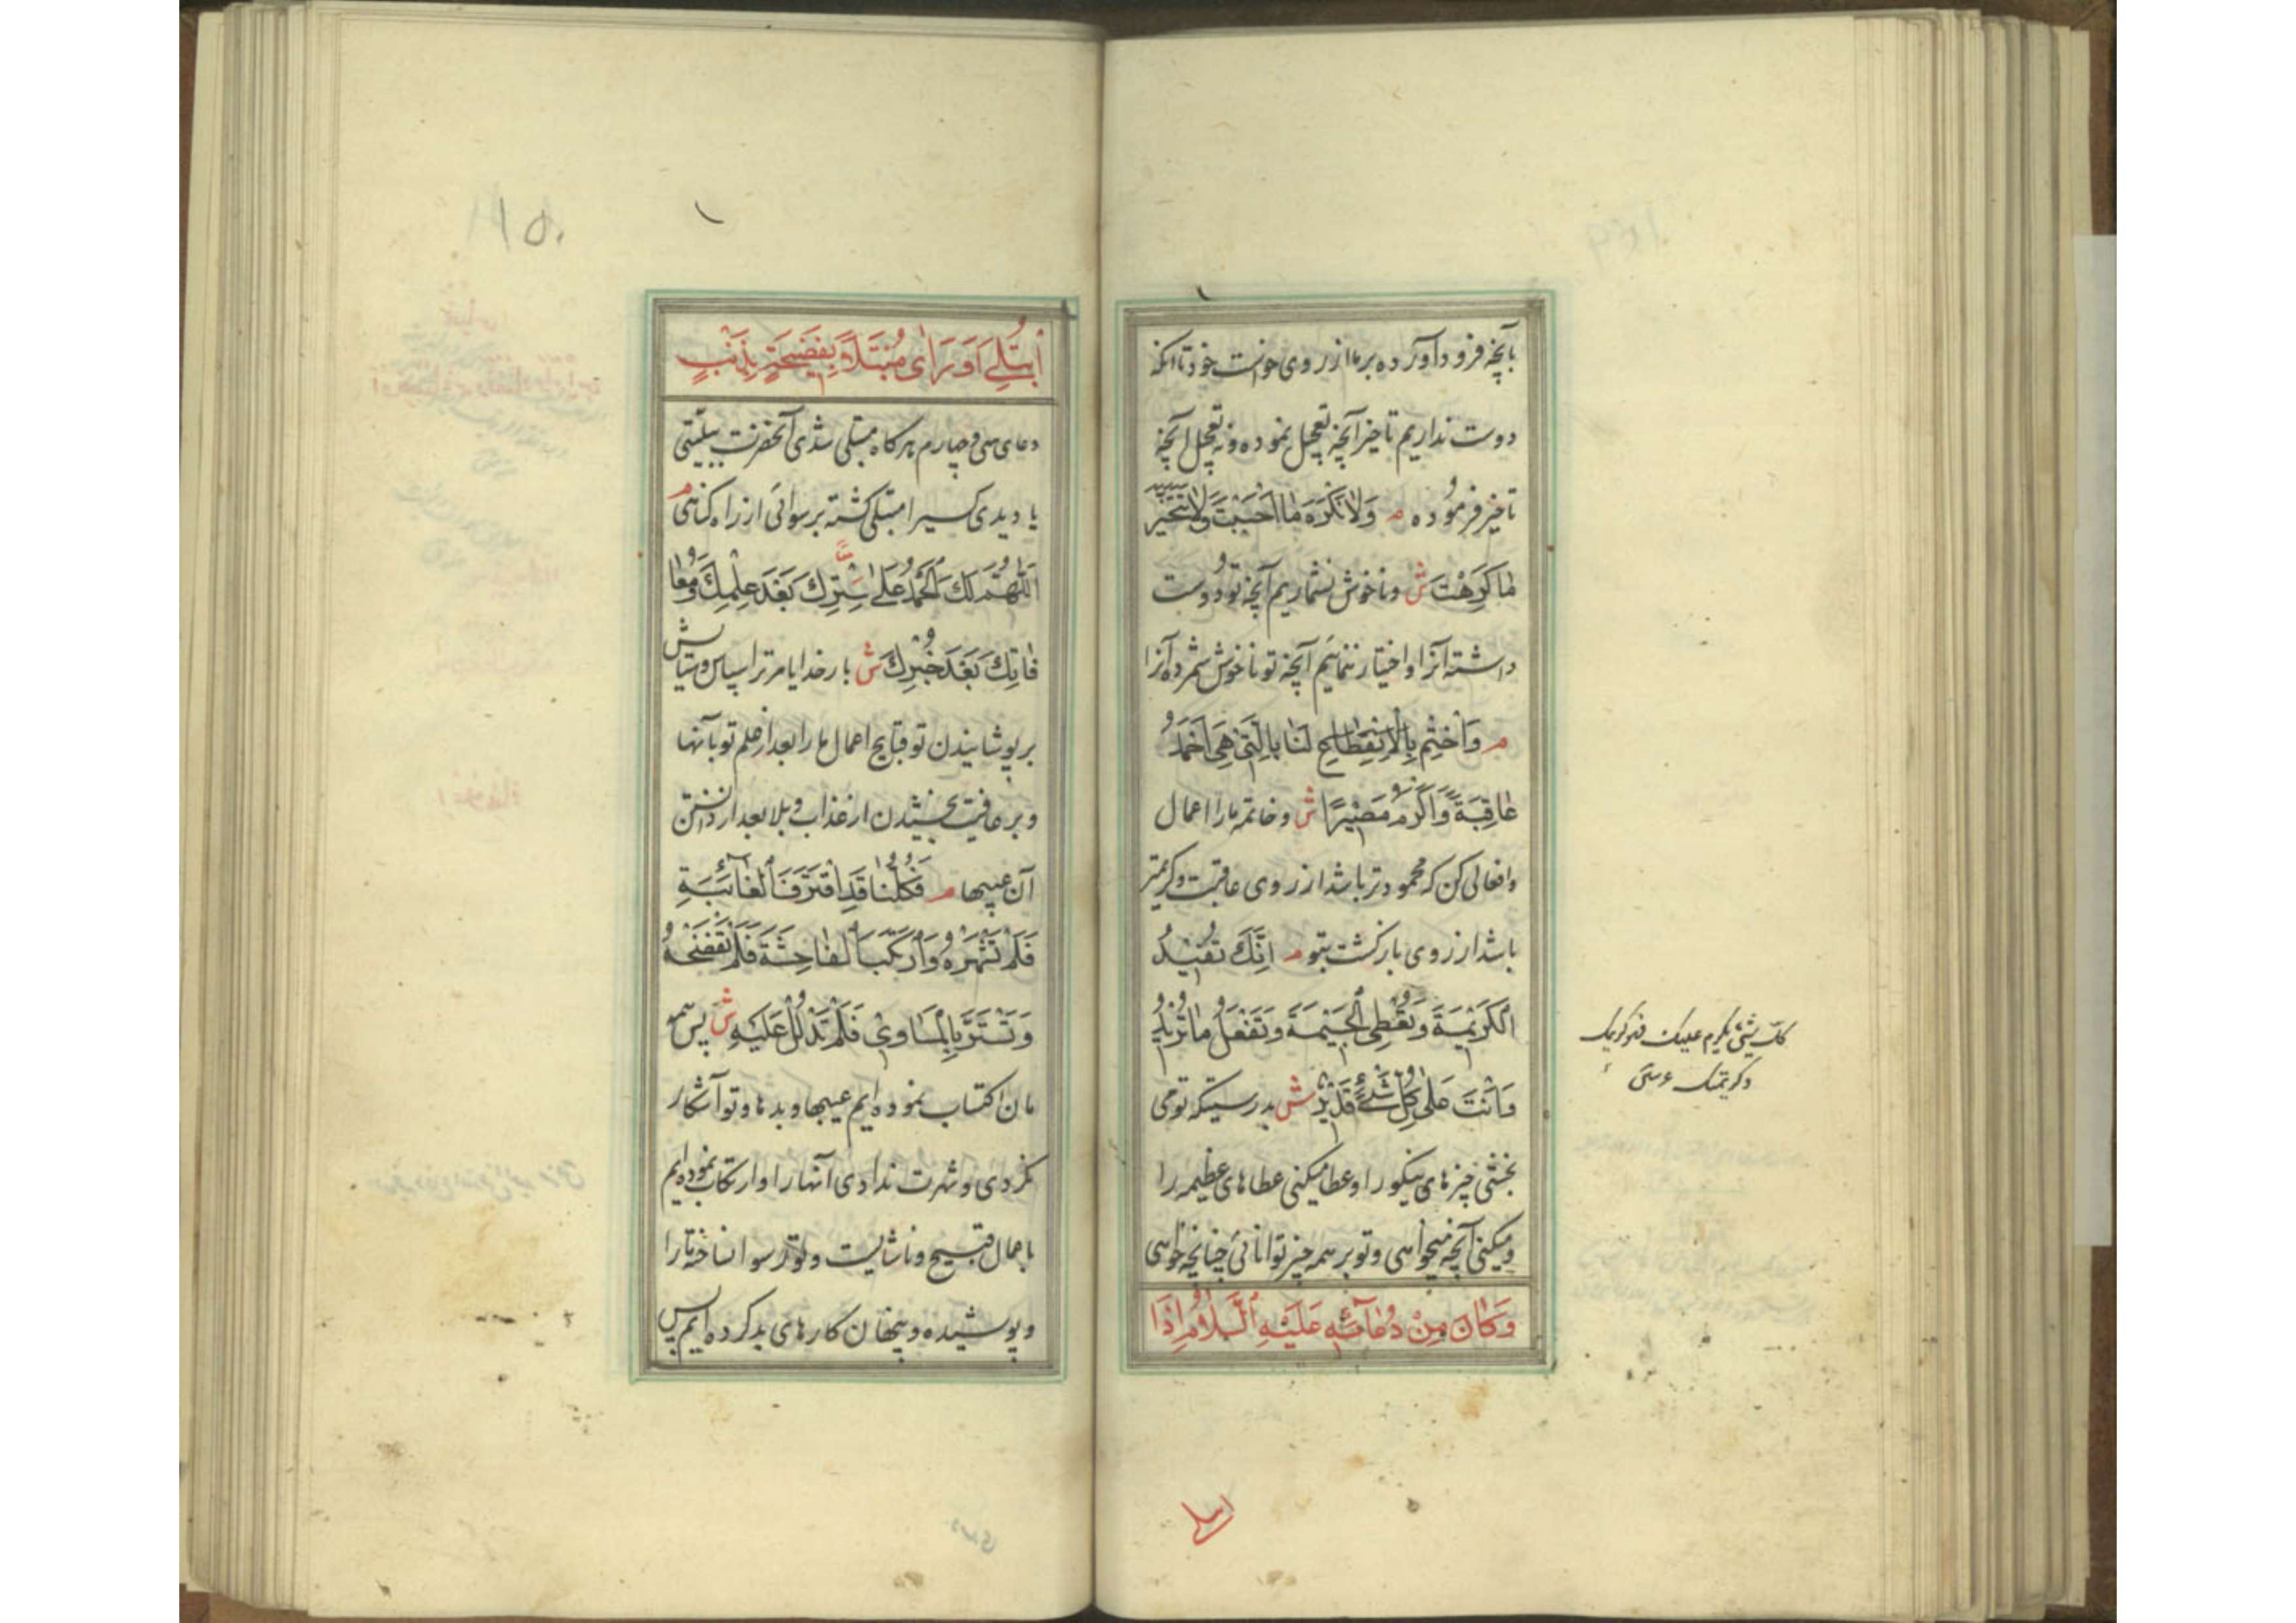 بآنچه فرود آورده بر ما از روی خواست خود تا آنکه
دوست نداریم تاخیر آنچه تعجیل نموده و نه تعجیل آنچه
تاخیر فرموده م وَلَا نَكْرَهَ مَا اَحْبَبْتَ وَلَا نَتَخَيَّرَ
مَا كَرِهْتَ ش و ناخوش نشماریم آنچه تو دوست
داشته آنرا و اختیار ننمائیم آنچه تو ناخوش شمرده آنرا
م وَاخْتِمْ لَنَا بِالَّتِي هِيَ اَحْمَدُ
عَاقِبَةً وَاَكْرَمُ مَصِيْرًا ش و خاتمه ما را اعمال
و افعالی کن که محمودتر باشد از روی عاقبت و کریمتر
باشد از روی بازگشت بتو م اِنَّكَ تُفِيْدُ
الْكَرِيْمَةَ وَتُعْطِي الْجَسِيْمَةَ وَتَفْعَلُ مَا تُرِيْدُ
وَاَنْتَ عَلٰى كُلِّ شَيْءٍ قَدِيْرٌ ش بدرستیکه تو می
بخشی چیزهای نیکو را و عطا میکنی عطاهای عظیمه را
و میکنی آنچه میخواهی و تو بر همه چیز توانائی چنانچه خواهی
وَكَانَ مِنْ دُعَآئِهٖ عَلَيْهِ السَّلَامُ اِذَا
كل شئ يكرم عليك فهو كريمك
و كريمتك
ابتلی
۱۵۰
اُبْتُلِيَ اَوْ رَاٰى مُبْتَلًى بِفَضِيْحَةٍ بِذَنْبٍ
دعای سی و چهارم هرگاه مبتلی شدی آنحضرت ببلیتی
یا دیدی کسی را مبتلی گشته برسوائی از راه گناهی م
اَللّٰهُمَّ لَكَ الْحَمْدُ عَلٰى سِتْرِكَ بَعْدَ عِلْمِكَ وَمُعَا
فَاتِكَ بَعْدَ خُبْرِكَ ش بار خدایا مر ترا سپاس و ستایش
بر پوشانیدن تو قبایح اعمال ما را بعد از علم تو بآنها
و بر عافیت بخشیدن از عذاب و بلا بعد از دانستن
آن عیبها م فَكُلُّنَا قَدِ اقْتَرَفَ الْعَائِبَةَ
فَلَمْ تَشْهَرْهُ وَارْتَكَبَ الْفَاحِشَةَ فَلَمْ تَفْضَحْهُ
وَتَسَتَّرَ بِالْمَسَاوِئِ فَلَمْ تَدْلُلْ عَلَيْهِ ش پس همه
مان اکتساب نموده ایم عیبها و بدها و تو آشکار
نکردی و شهرت ندادی آنها را و ارتکاب نموده ایم
باعمال قبیح و ناشایست و تو رسوا نساخته ما را
و پوشیده و پنهان کارهای بد کرده ایم پس